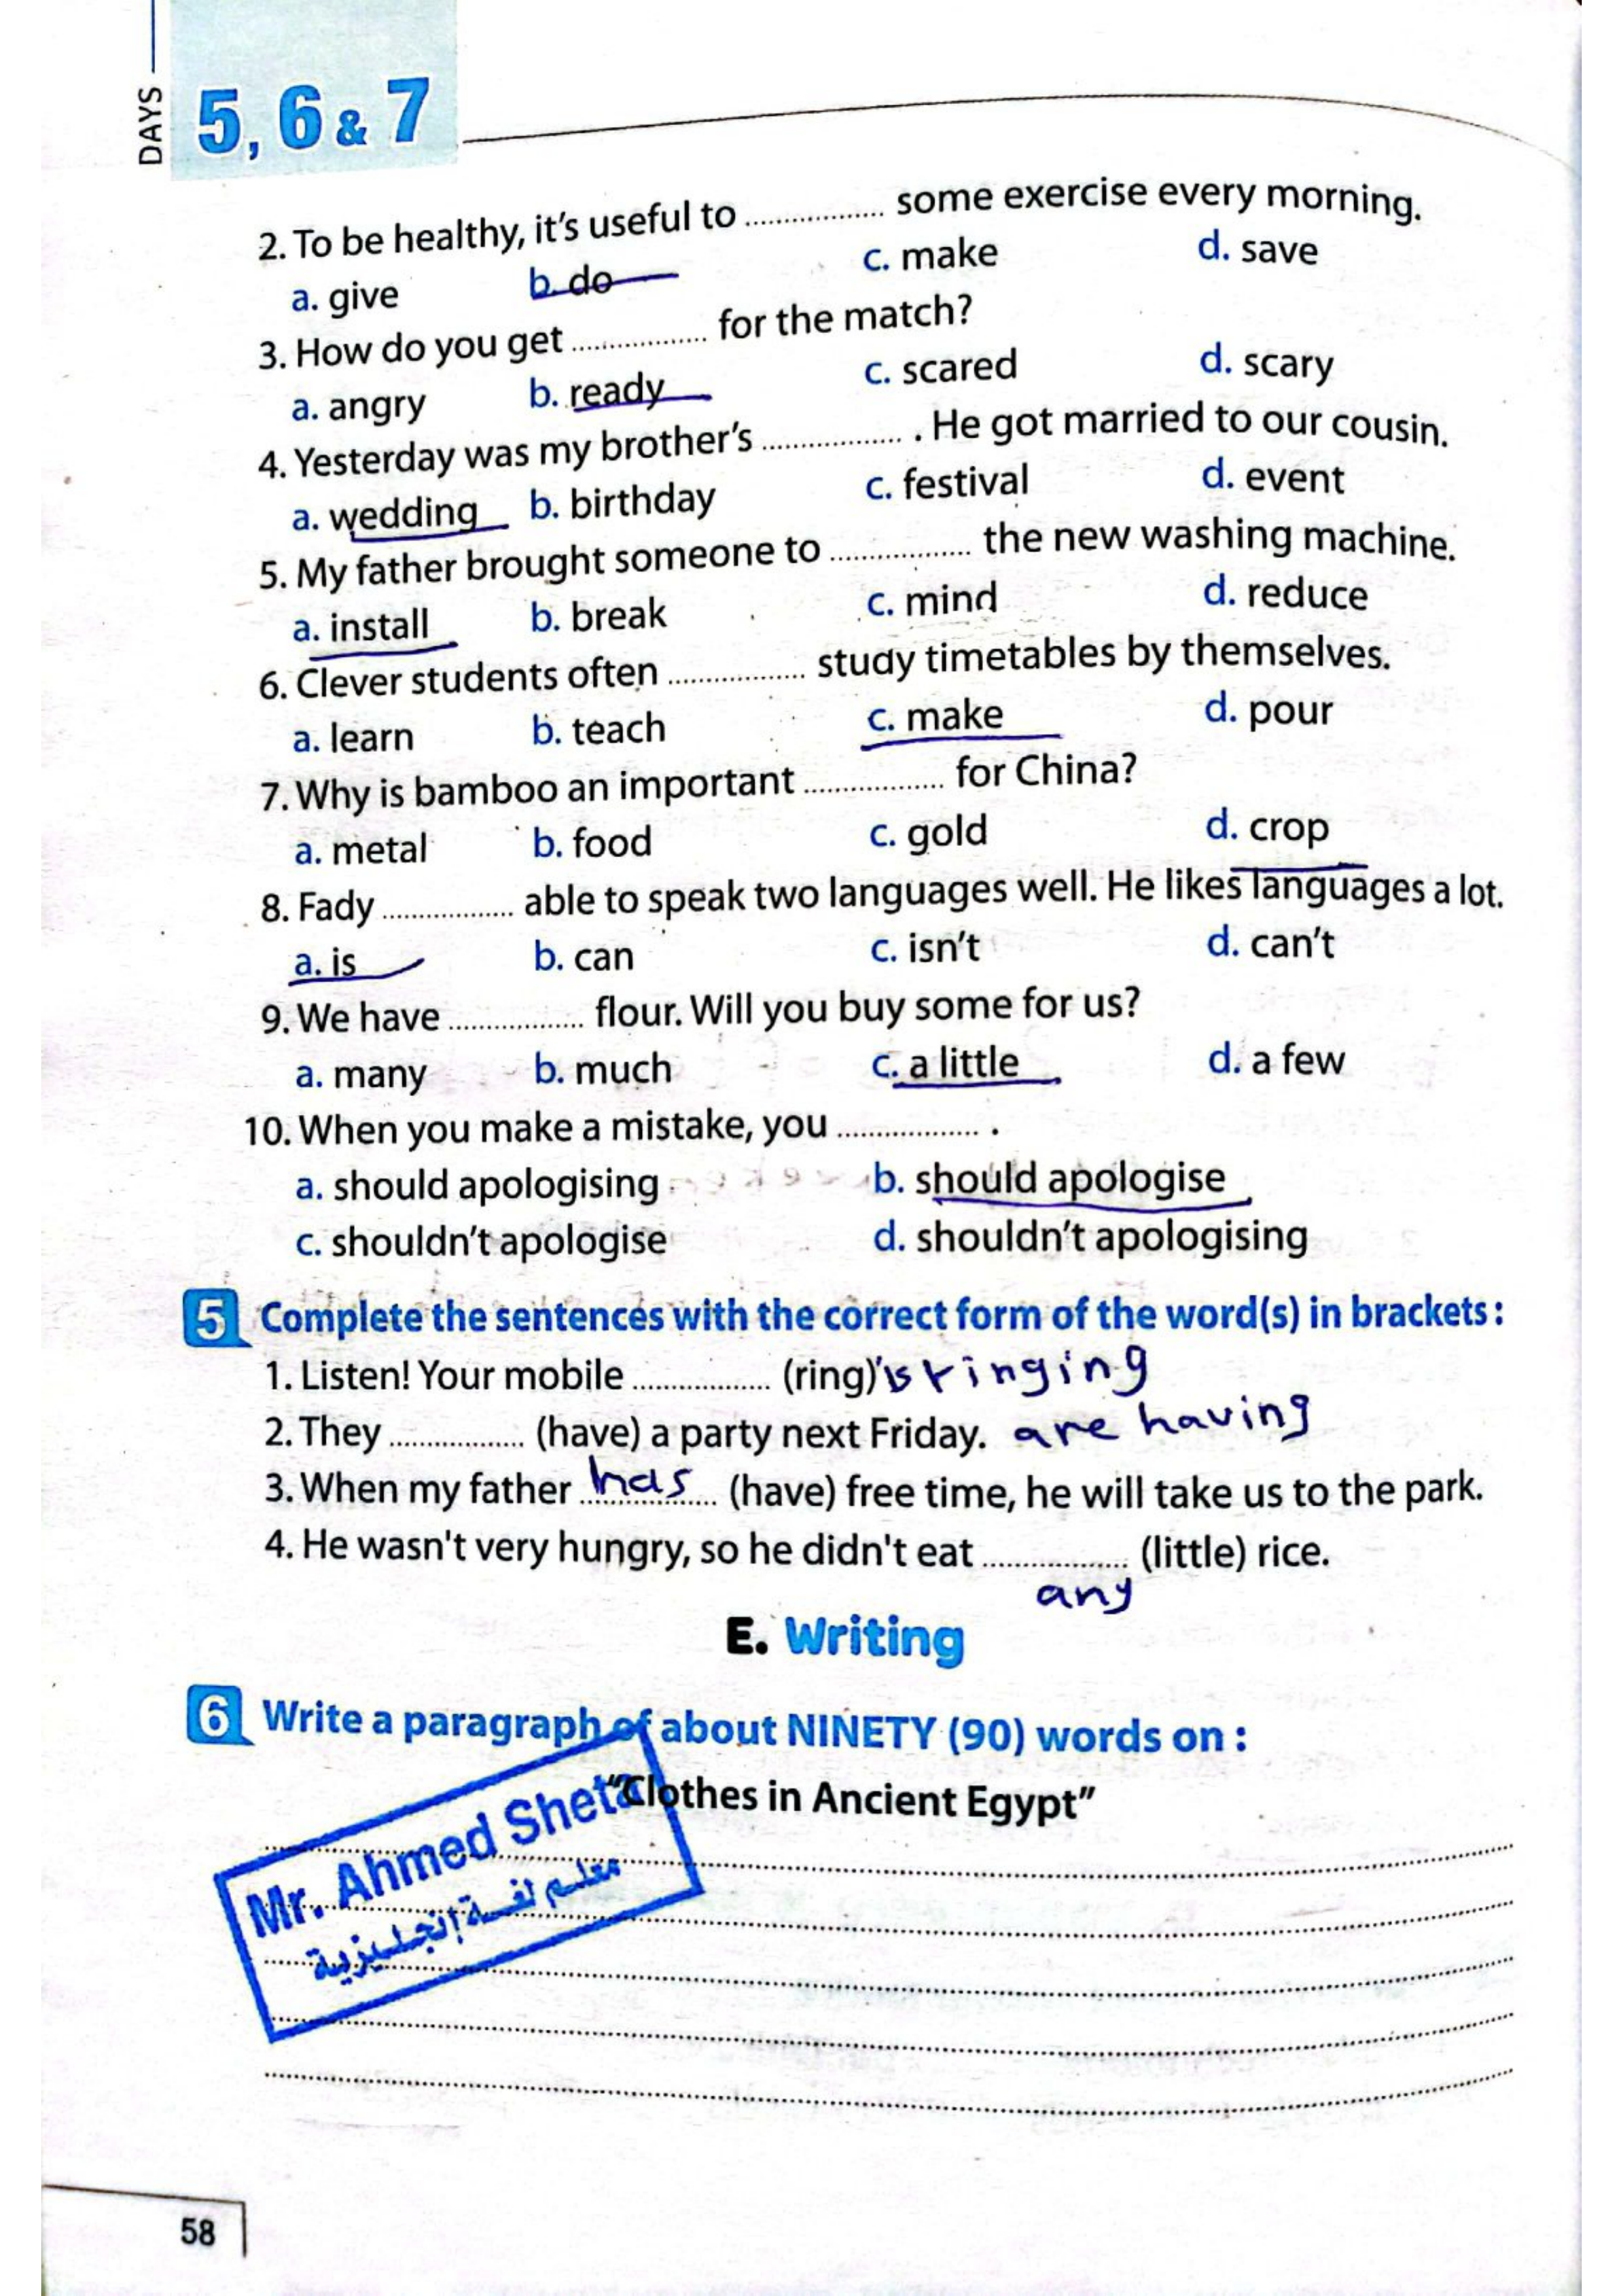 DAYS 5, 6 & 7
2. To be healthy, it's useful to ................ some exercise every morning.
a. give b. do c. make d. save
3. How do you get ................ for the match?
a. angry b. ready c. scared d. scary
4. Yesterday was my brother's ................ . He got married to our cousin.
a. wedding b. birthday c. festival d. event
5. My father brought someone to ................ the new washing machine.
a. install b. break c. mind d. reduce
6. Clever students often ................ study timetables by themselves.
a. learn b. teach c. make d. pour
7. Why is bamboo an important ................ for China?
a. metal b. food c. gold d. crop
8. Fady ................ able to speak two languages well. He likes languages a lot.
a. is b. can c. isn't d. can't
9. We have ................ flour. Will you buy some for us?
a. many b. much c. a little d. a few
10. When you make a mistake, you ................ .
a. should apologising b. should apologise
c. shouldn't apologise d. shouldn't apologising
5 Complete the sentences with the correct form of the word(s) in brackets :
1. Listen! Your mobile ................ (ring) is ringing
2. They ................ (have) a party next Friday. are having
3. When my father has (have) free time, he will take us to the park.
4. He wasn't very hungry, so he didn't eat ................ (little) rice.
any
E. Writing
6 Write a paragraph of about NINETY (90) words on :
"Clothes in Ancient Egypt"
Mr. Ahmed Sheta
معلم لغة إنجليزية
58